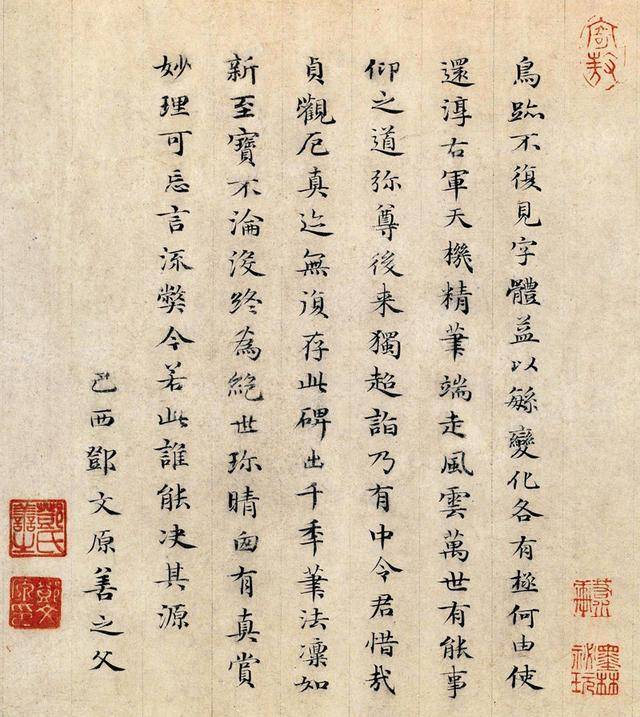 鳥跡不復見字體益以緐變化各有極何由使
還淳右軍天機精筆端走風雲萬世有能事
仰之道弥尊後来獨超詣乃有中令君惜哉
貞觀厄真迹無復存此碑出千年筆法凜如
新至寶不淪没終為絕世珎晴囱有真賞
妙理可忘言流弊今若此誰能决其源
己酉鄧文原善之父
墨林祕玩